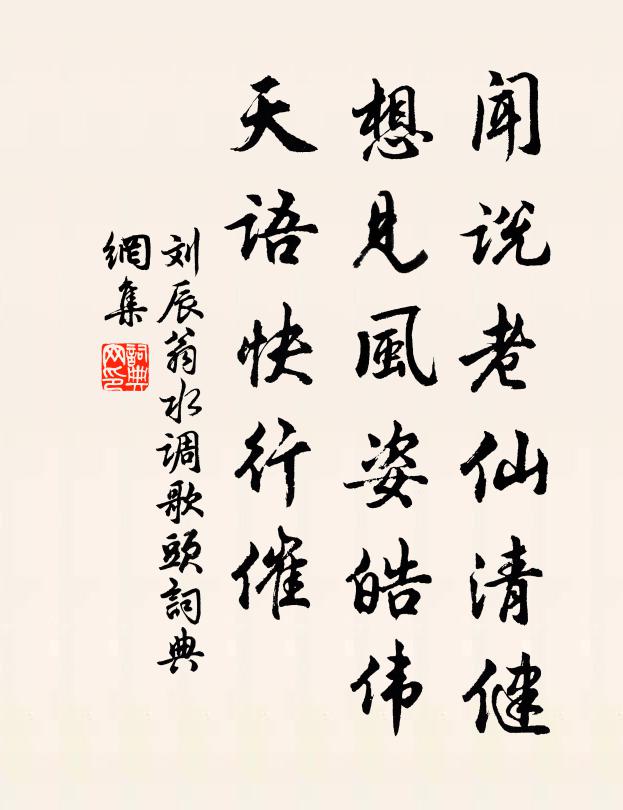 闻说老仙清健
想見風姿皓伟
天语快行催
刘辰翁水调歌頭詞典
網集
詞典
网印